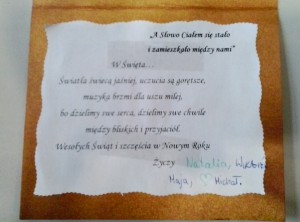 „A Słowo Ciałem się stało
i zamieszkało między nami"
W Święta...
Światła świecą jaśniej, uczucia są gorętsze,
muzyka brzmi dla uszu milej,
bo dzielimy swe serca, dzielimy swe chwile
między bliskich i przyjaciół.
Wesołych Świąt i szczęścia w Nowym Roku
Życzy Natalia, Wiktoria
Maja, Michał.